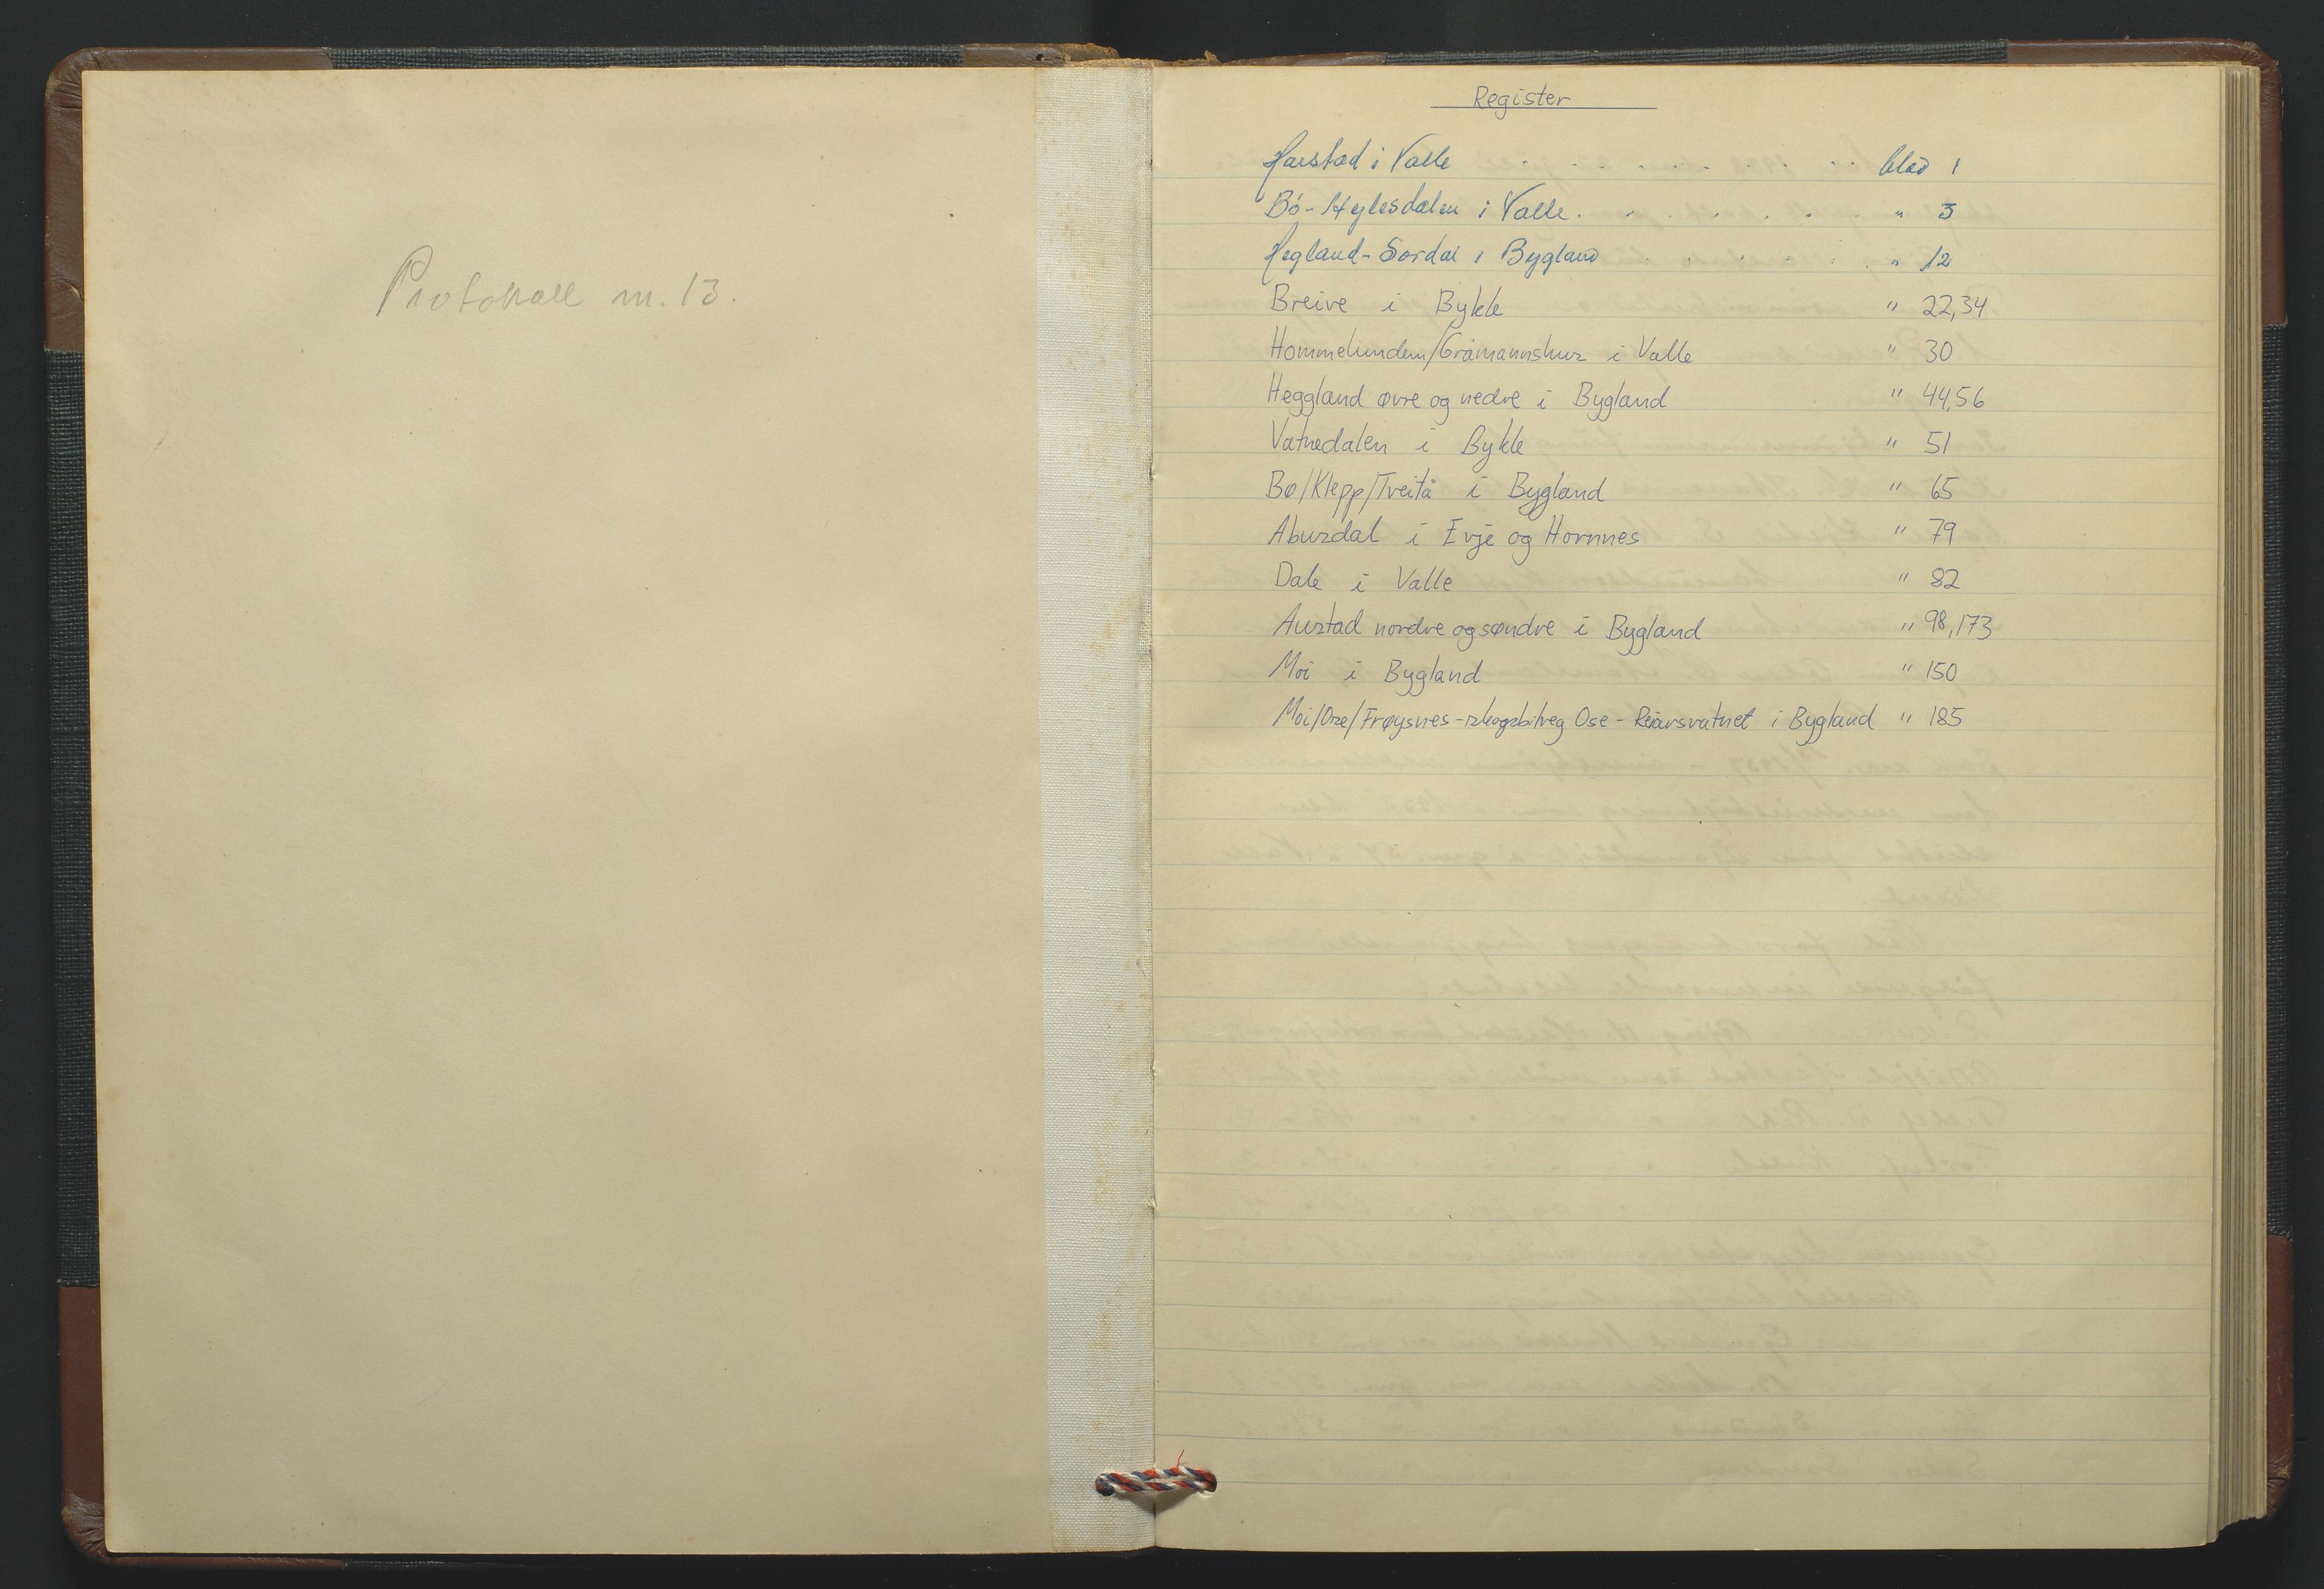 Protokoll nr. 13.
Register
Harstad i Valle . . . . . . . . . blad 1
Bö - Hylesdalen i Valle . . . . . . . " 3
Hegland - Sordal i Bygland . . . . . . " 12
Breive i Bykle " 22,34
Hommelunden/Gråmannshus i Valle " 30
Heggland øvre og nedre i Bygland " 44,56
Vatnedalen i Bykle " 51
Bø/Klepp/Tveitå i Bygland " 65
Abusdal i Evje og Hornnes " 79
Dale i Valle " 82
Austad nordre og søndre i Bygland " 98,173
Moi i Bygland " 150
Moi/Ose/Frøysnes - skogsbilveg Ose - Reiårsvatnet i Bygland " 185